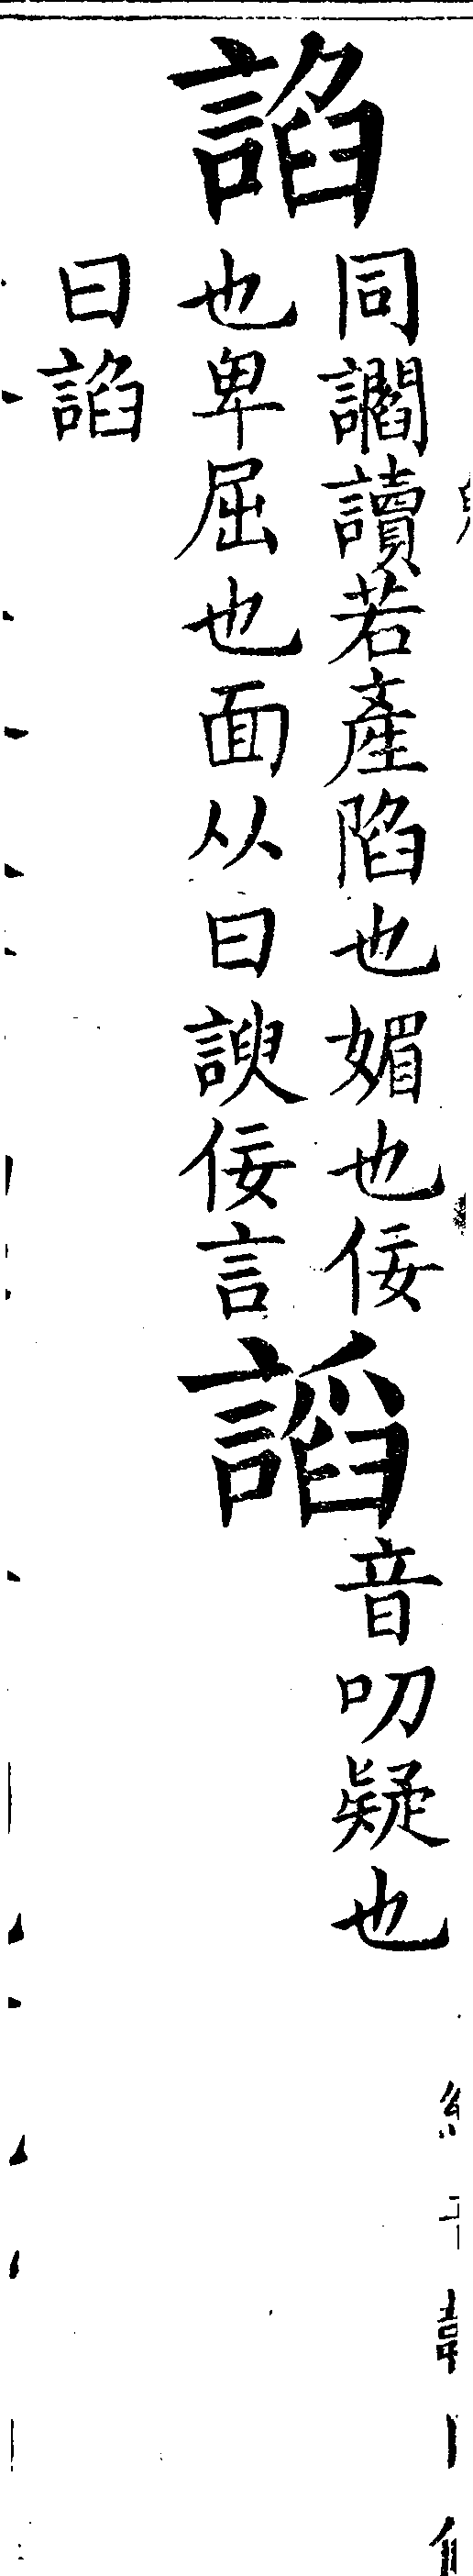 諂
同讇讀若產陷也媚也佞
也卑屈也面从曰諛佞言
曰諂
謟
音叨疑也